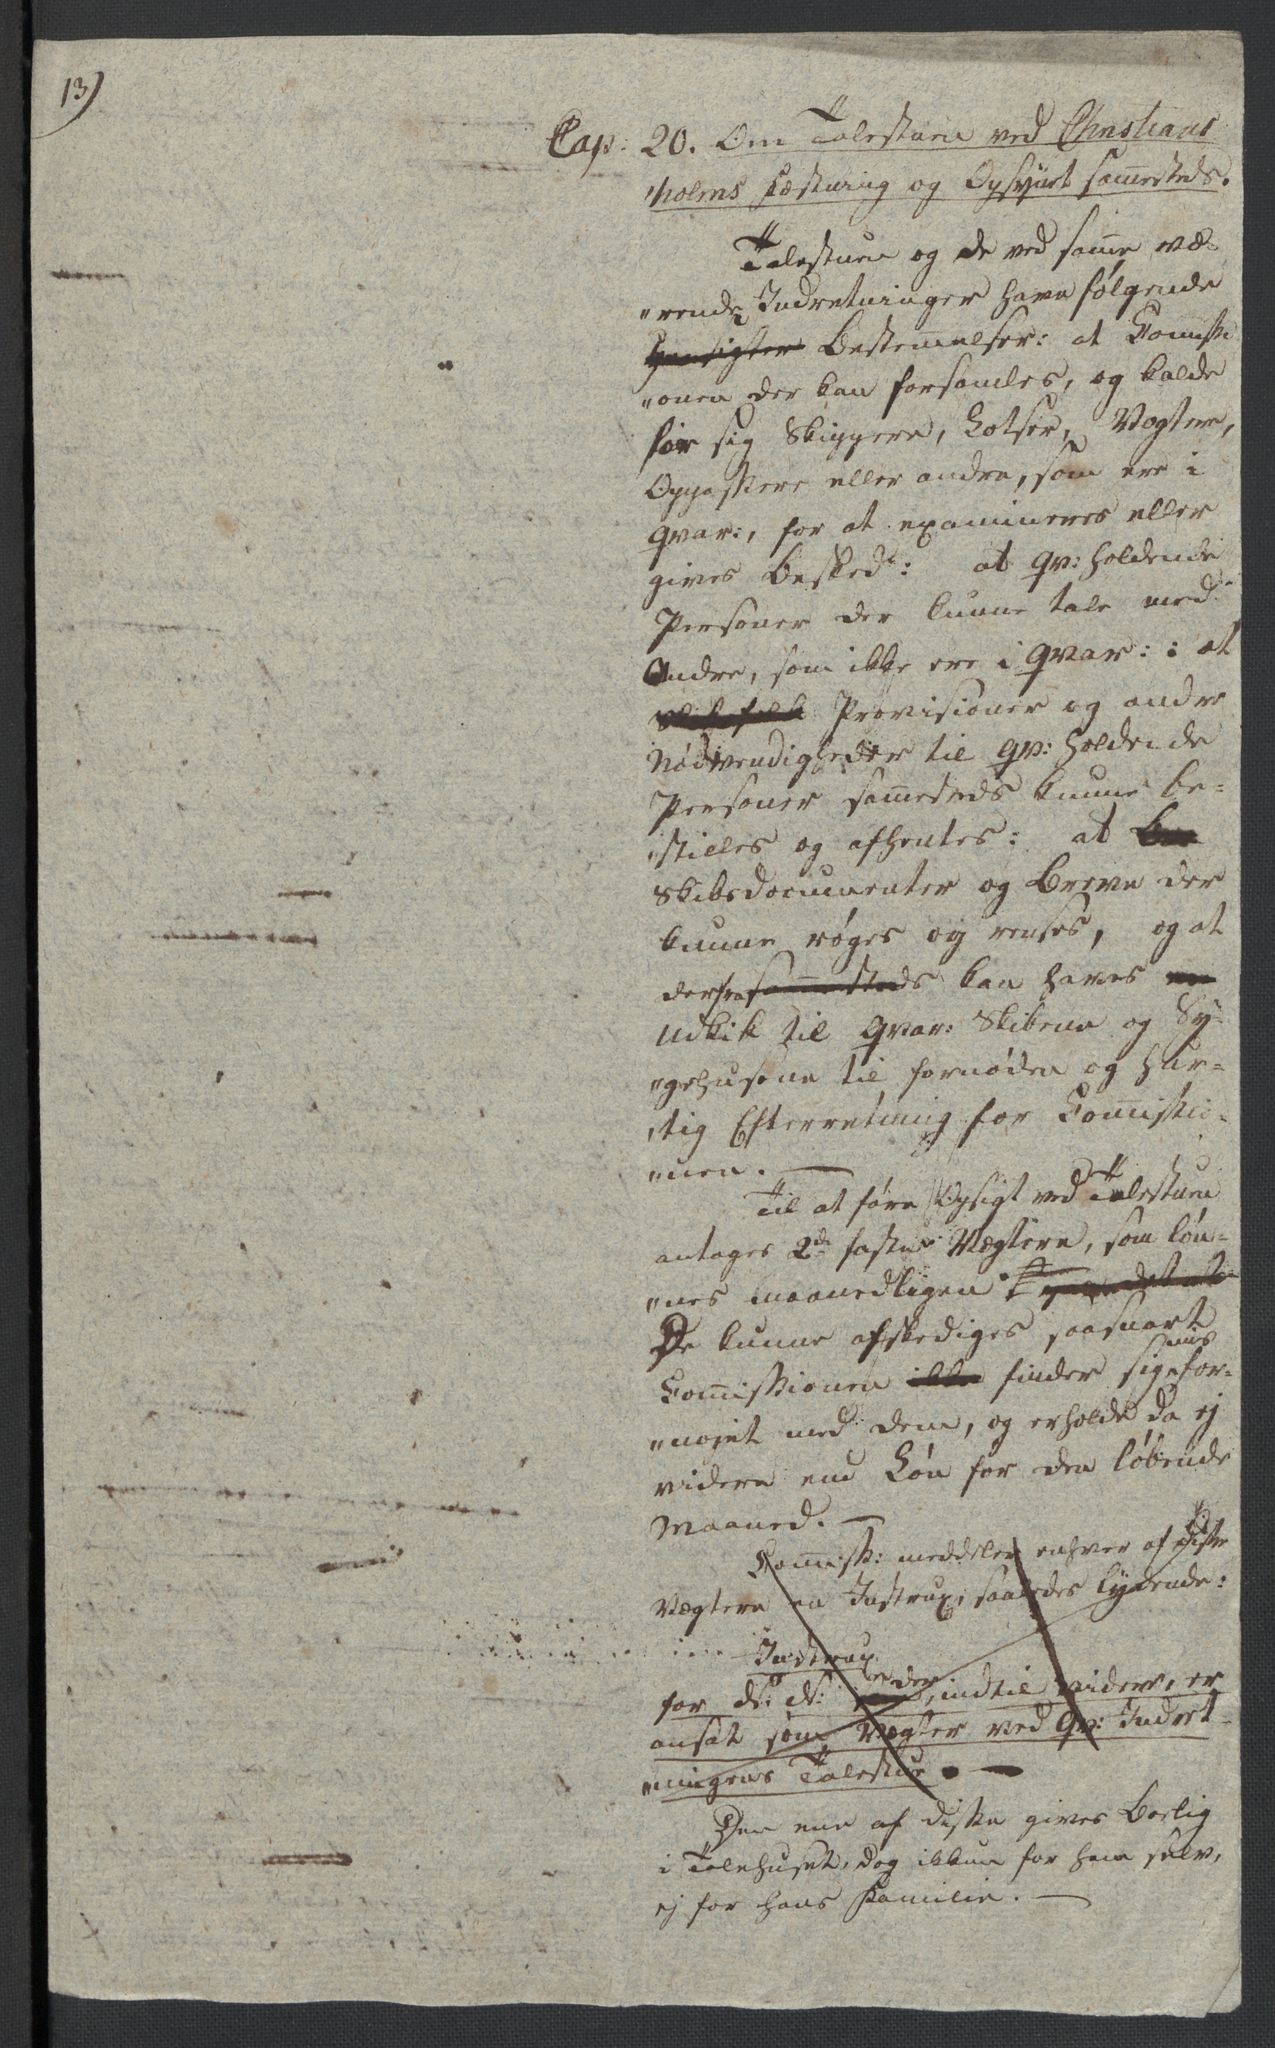 13)
Cap: 20. Om Talestuen ved Christians
"holms Fæstning og Opsynet sammesteds.
Talestuen og de ved samme væ-
"rende Indretninger have følgende
Hensigter Bestemmelser: at Commissi
"onen der kan forsamles, og kalde
for sig Skippere, Lotser, Vogtere,
Oppassere eller andre, som ere i
Qvar:, for at examineres eller
gives Besked: at Qv: holdende
Personer der kunne tale med
Andre, som ikke ere i Qvar: : at
Provisioner og andre
Nødvendigheder til Qv: holdende
Personer sammesteds kunne be-
"stilles og afhentes: at
Skibsdocumenter og Breve der
kunne røges og renses, og at
derfra sammesteds kan haves en
Udkik til Qvar: Skibene og Sy-
"gehusene til fornøden og hur-
"tig Efterretning for Commissio-
"nen. —
Til at føre Opsigt ved Talestuen
antages 2de faste Vægtere, som løn-
"nes maanedligen
De kunne afskediges saasnart
Commissionen ikke finder sig misfor-
"nøjet med dem, og erholde da ej
videre end Løn for den løbende
Maaned. —
Commiss: meddeler enhver af disse
Vægtere en Instrux, saaledes lydende:
Instrux
for N: N: der, indtil videre, er
ansat som Vægter ved Qv: Indret-
"ningens Talestue. —
Den ene af disse gives Bolig
i Talehuset, dog ikkun for ham selv,
ej for hans Familie. —